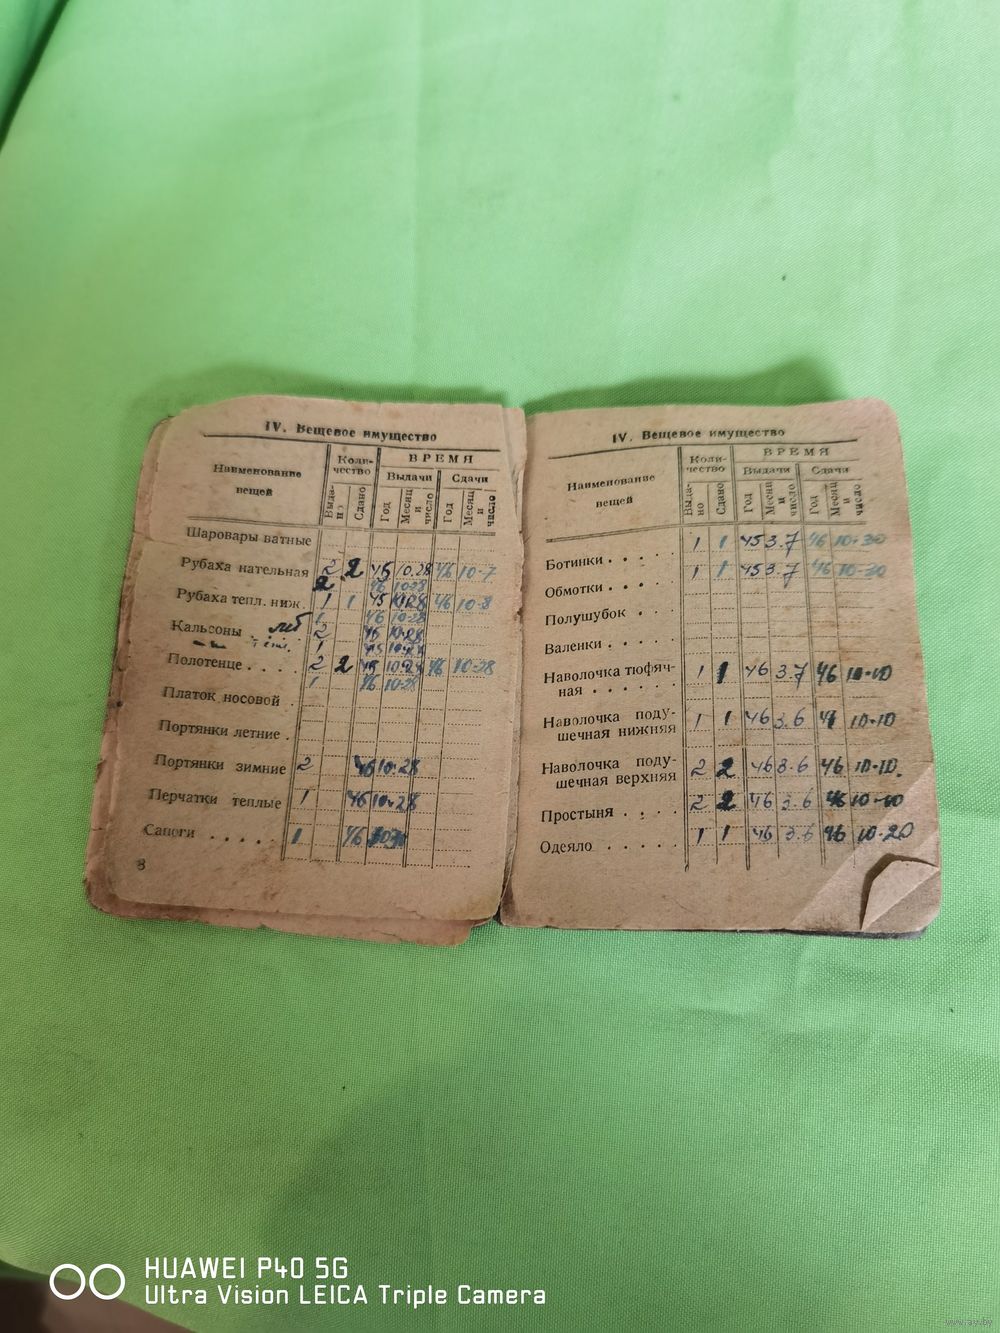 IV. Вещевое имущество
Наименование вещей
Коли-
чество
ВРЕМЯ
Выдачи
Сдачи
Выда-
но
Сдано
Год
Месяц и число
Год
Месяц и число
Шаровары ватные
Рубаха нательная 2 2 45 10.28 46 10-7
2 46 10-28
Рубаха тепл. ниж. 1 1 45 10.28 46 10-8
1 46 10-28
Кальсоны . 2 46 10-28
1 45
Полотенце . . . 2 2 45 10.28 46 10-28
1 46 10-28
Платок носовой .
Портянки летние .
Портянки зимние 2 46 10-28
Перчатки теплые 1 46 10-28
Сапоги . . . . 1 46
8
IV. Вещевое имущество
Наименование
вещей
Коли-
чество
ВРЕМЯ
Выдачи
Сдачи
Выда-
но
Сдано
Год
Месяц и число
Год
Месяц и число
Ботинки . . . . 1 1 45 3.7 46 10-30
Обмотки . . . . 1 1 45 3.7 46 10-30
Полушубок . .
Валенки . . .
Наволочка тюфяч-
ная . . . . . . 1 1 46 3.7 46 10-10
Наволочка поду-
шечная нижняя 1 1 46 3.6 10-10
Наволочка поду-
шечная верхняя 2 2 46 3.6 46 10-10.
Простыня . . . 2 2 46 3.6 46 10-10
Одеяло . . . . . 1 1 46 3.6 46 10-20
HUAWEI P40 5G
Ultra Vision LEICA Triple Camera
www.ay.by